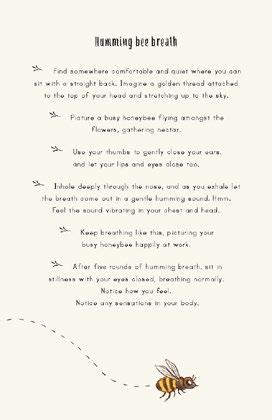 Humming bee breath
Find somewhere comfortable and quiet where you can
sit with a straight back. Imagine a golden thread attached
to the top of your head and stretching up to the sky.
Picture a busy honeybee flying amongst the
flowers, gathering nectar.
Use your thumbs to gently close your ears,
and let your lips and eyes close too.
Inhale deeply through the nose, and as you exhale let
the breath come out in a gentle humming sound. Hmm.
Feel the sound vibrating in your chest and head.
Keep breathing like this, picturing your
busy honeybee happily at work.
After five rounds of humming breath, sit in
stillness with your eyes closed, breathing normally.
Notice how you feel.
Notice any sensations in your body.